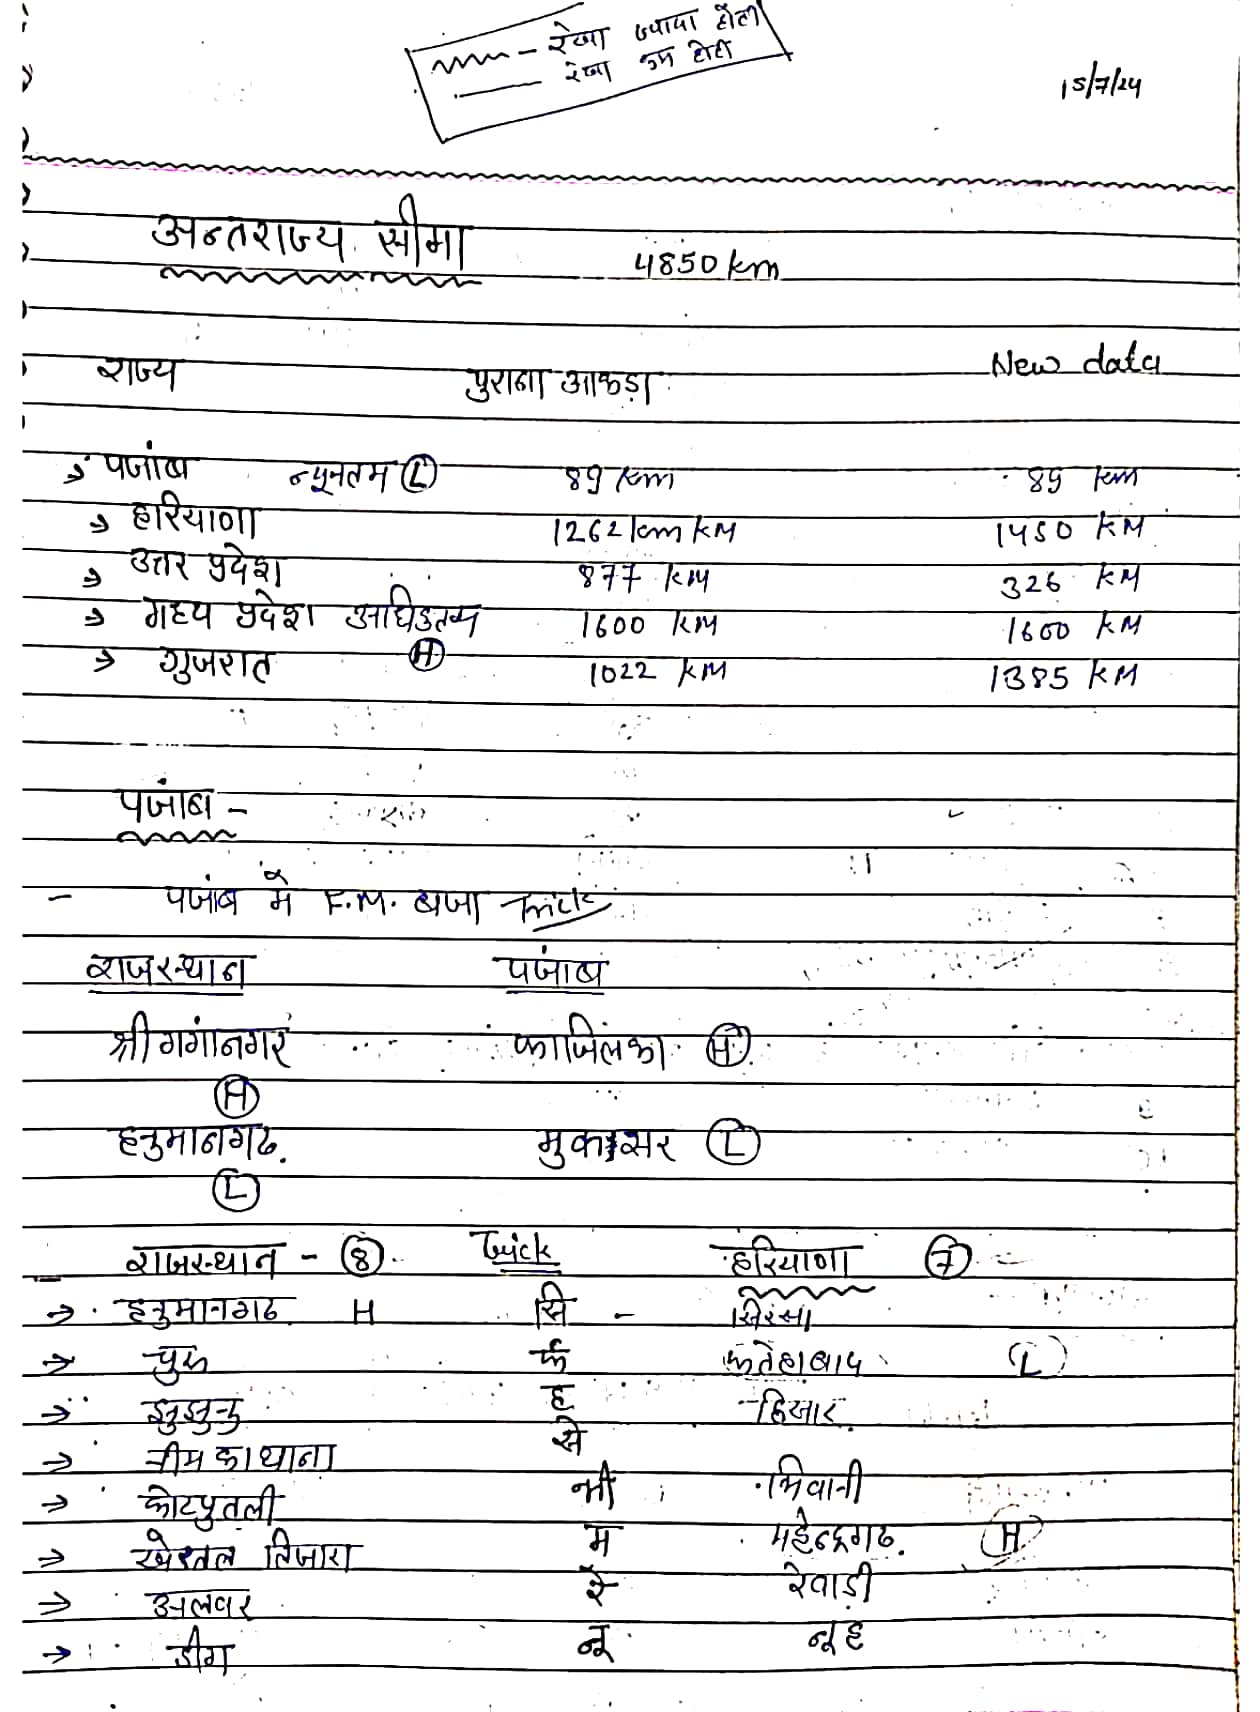 ~~~ - रेखा ज्यादा होती
—— रेखा कम होटी
15/7/24
अन्तराज्य सीमा 4850 km
राज्य पुराना आकड़ा New data
→ पजांब न्यूनतम (L) 89 km 89 km
→ हरियाणा 1262 km KM 1450 KM
→ उत्तर प्रदेश 877 KM 326 KM
→ मध्य प्रदेश अधिकतम 1600 KM 1600 KM
→ गुजरात (H) 1022 KM 1385 KM
पजांब -
- पजांब मे F.M. बजा Trick
राजस्थान पजांब
श्री गगांनगर फाजिलका (H)
(H)
हनुमानगढ. मुकतसर (L)
(L)
राजस्थान - (8) Trick हरियाणा (7)
→ हनुमानगढ H सि - सिरसा
→ चुरू फ फतेहाबाद (L)
→ झुझुनु ह हिसार
→ नीम का थाना से
→ कोटपुतली भी भिवानी
→ खेरतल तिजारा म महेन्द्रगढ. (H)
→ अलवर रे रेवाड़ी
→ डीग नू नूह